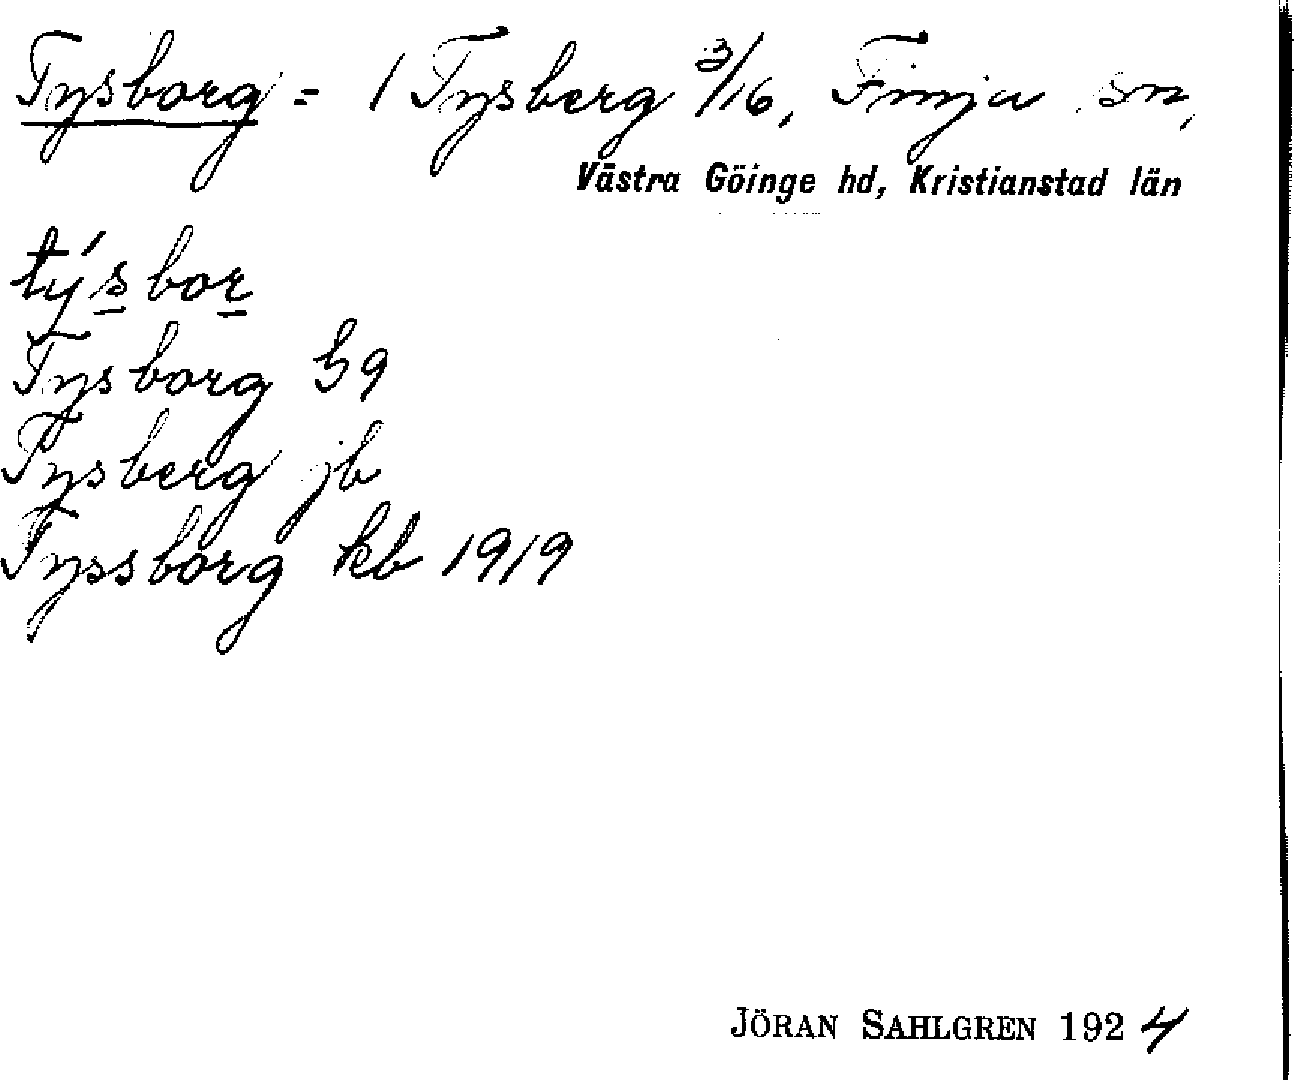 Tysborg = 1 Tysberg 3/16, Finja sn,
Västra Göinge hd, Kristianstad län
tý́sbor
Tysborg G9
Tysberg jb
Tyssborg kb 1919
JÖRAN SAHLGREN 1924